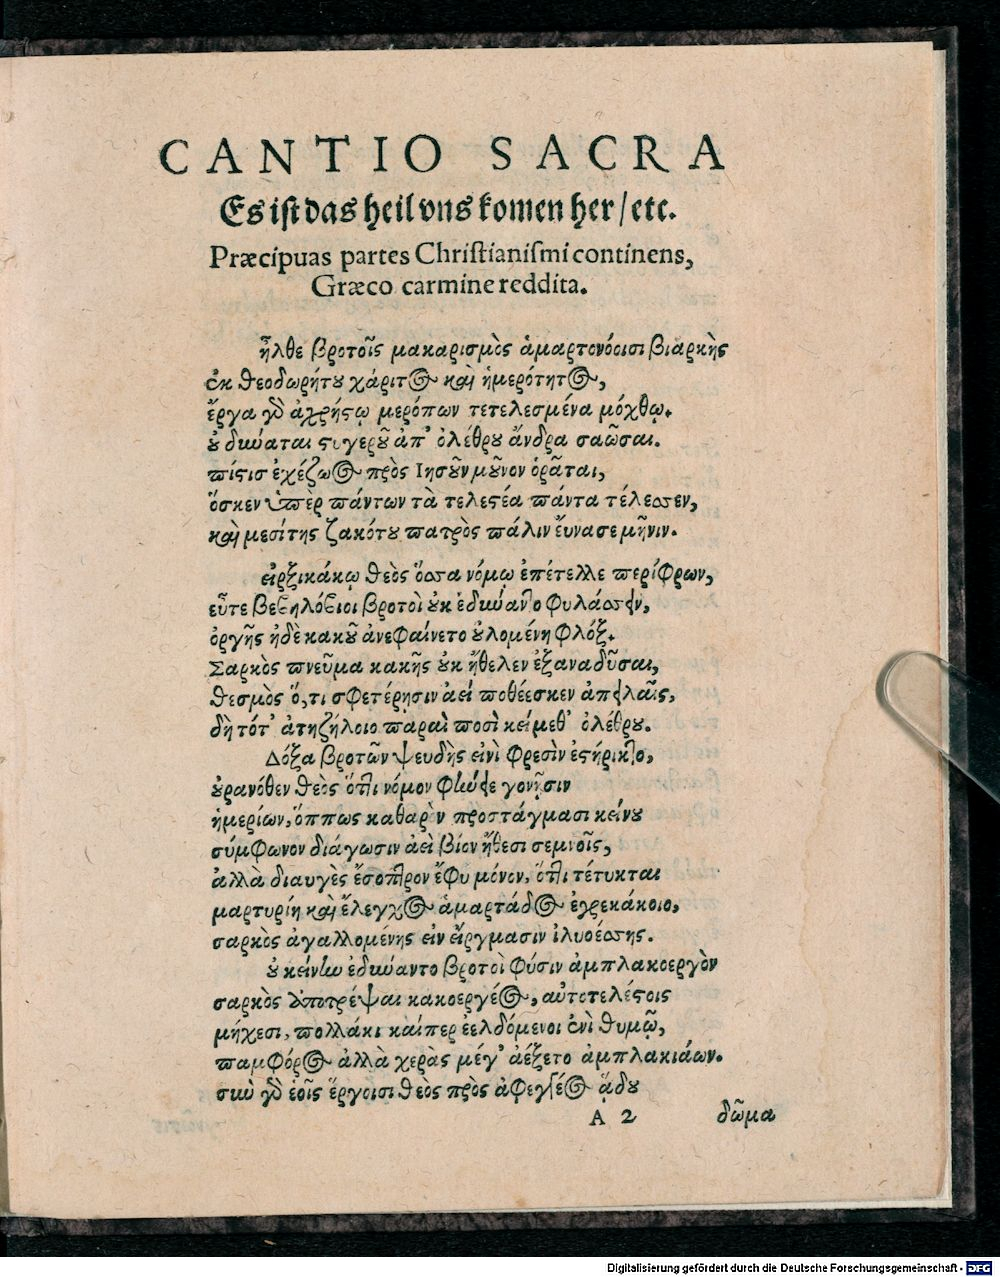 CANTIO SACRA
Es ist das heil vns komen her/etc.
Præcipuas partes Christianismi continens,
Græco carmine reddita.
ἦλθε βροτοῖς μακαρισμὸς ἁμαρτονόοισι βιαρκὴς
ἐκ θεοδωρήτου χάριτος καὶ ἡμερότητος,
ἔργα γὸ ἀχρήςῳ μερόπων τετελεσμένα μόχθῳ.
οὐ δύναται ςυγεροῦ ἀπ' ὀλέθρου ἄνδρα σαῶσαι.
πίςισ ἐχέζωος πρὸς Ιησοῦν μοῦνον ὁρᾶται,
ὅσκεν ὑπὲρ πάντων τὰ τελεςέα πάντα τέλεσσεν,
καὶ μεσίτης ζακότου πατρὸς πάλιν ἔυνασε μῆνιν.
εἰρξικάκῳ θεὸς ὅσσα νόμῳ ἐπέτελλε περίφρων,
εὖτε βεβηλόβιοι βροτοὶ οὐκ ἐδύναντο φυλάσσειν,
ὀργῆς ἠδὲ κακοῦ ἀνεφαίνετο οὐλομένη φλόξ.
Σαρκὸς πνεῦμα κακῆς οὐκ ἤθελεν ἐξαναδῦσαι,
θεσμὸς ὅ, τι σφετέρησιν ἀεὶ ποθέεσκεν ἀπειλαῖς,
δὴ τότ' ἀτηζήλοιο παραὶ ποσὶ κείμεθ' ὀλέθρου.
Δόξα βροτῶν ψευδὴς εἰνὶ φρεσὶν ἐςήρικτο,
οὐρανόθεν θεὸς ὅττι νόμον φίτυσε γονῇσιν
ἡμερίων, ὅππως καθαρὸν προστάγμασι κείνου
σύμφωνον διάγωσιν ἀεὶ βίον ἤθεσι σεμνοῖς,
ἀλλὰ διαυγὲς ἔσοπτρον ἔφυ μόνον, ὅττι τέτυκται
μαρτυρίη καὶ ἔλεγχος ἁμαρτάδος ἐχρεκάκοιο,
σαρκὸς ἀγαλλομένης εἰν εἴργμασιν ἰλυοέσσης.
οὐ κείνην ἐδύναντο βροτοὶ φύσιν ἀμπλακοεργὸν
σαρκὸς ἀποτρέψαι κακοεργέος, αὐτοτελέςοις
μήχεσι, πολλάκι καίπερ ἐελδόμενοι ἐνὶ θυμῷ,
παμφόρος ἀλλὰ χερὰς μέγ' ἀέξετο ἀμπλακιάων.
σὺν γὸ ἑοῖς ἔργοισι θεὸς πρὸς ἀφεγγέος ᾅδου
A 2 δῶμα
Digitalisierung gefördert durch die Deutsche Forschungsgemeinschaft - DFG